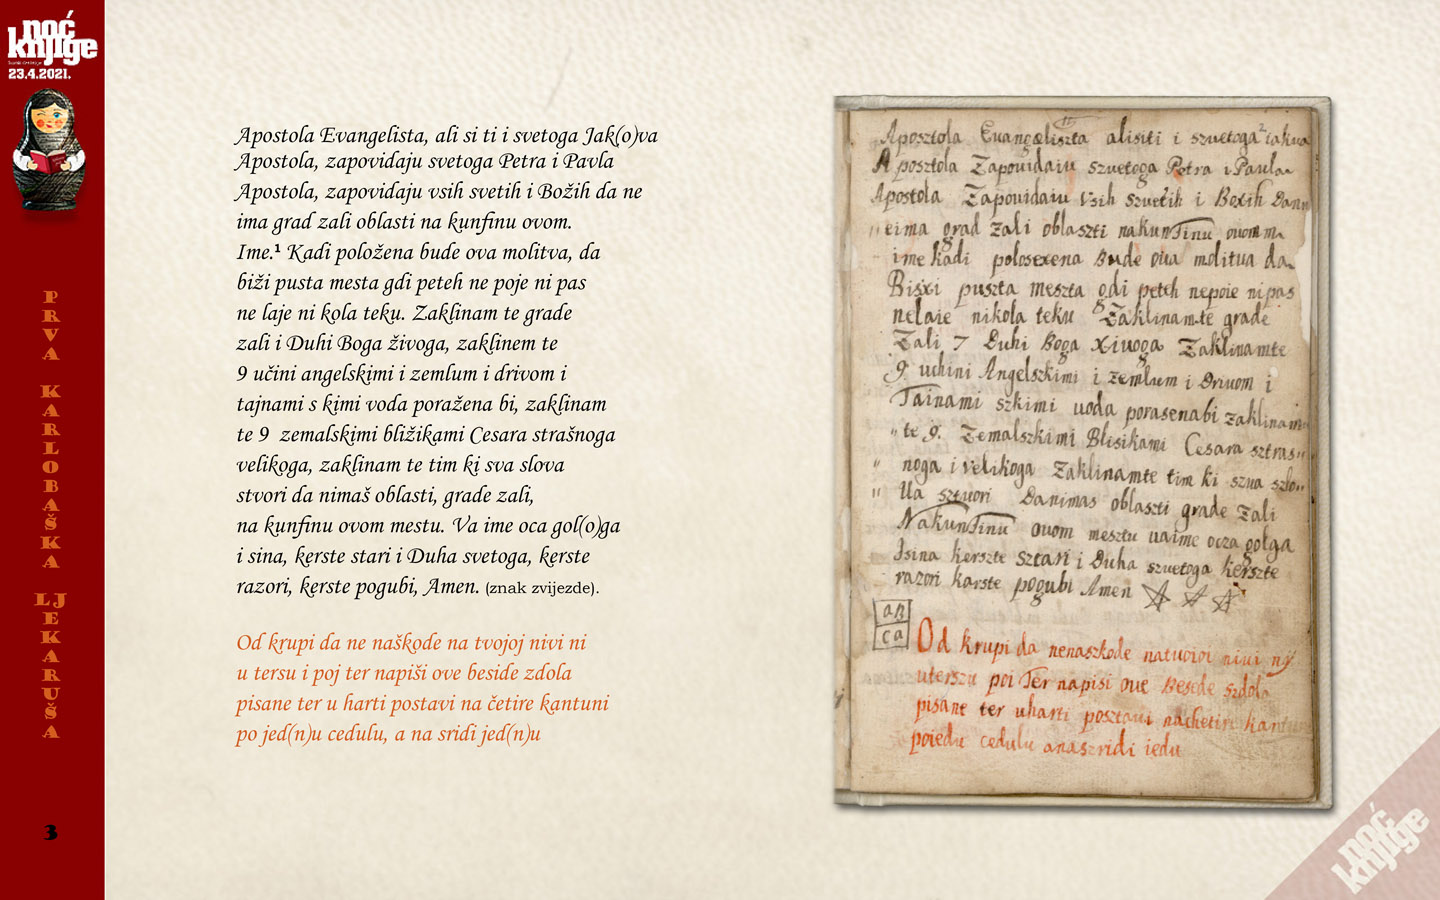 noć
knjige
23.4.2021.
PRVA KARLOBAŠKA LJEKARUŠA
3
Apostola Evangelista, ali si ti i svetoga Jak(o)va
Apostola, zapovidaju svetoga Petra i Pavla
Apostola, zapovidaju vsih svetih i Božih da ne
ima grad zali oblasti na kunfinu ovom.
Ime.¹ Kadi položena bude ova molitva, da
biži pusta mesta gdi peteh ne poje ni pas
ne laje ni kola teku. Zaklinam te grade
zali i Duhi Boga živoga, zaklinem te
9 učini angelskimi i zemlum i drivom i
tajnami s kimi voda poražena bi, zaklinam
te 9 zemalskimi bližikami Cesara strašnoga
velikoga, zaklinam te tim ki sva slova
stvori da nimaš oblasti, grade zali,
na kunfinu ovom mestu. Va ime oca gol(o)ga
i sina, kerste stari i Duha svetoga, kerste
razori, kerste pogubi, Amen. (znak zvijezde).
Od krupi da ne naškode na tvojoj nivi ni
u tersu i poj ter napiši ove beside zdola
pisane ter u harti postavi na četire kantuni
po jed(n)u cedulu, a na sridi jed(n)u
Aposztola Euangeliszta alisiti i szuetoga takua
Aposztola Zapouidaiu szuetoga Petra i Paula
Apostola Zapouidaiu vsih szuetih i Boxih Dann
eima grad zali oblaszti nakunTinu ouomm
ime kadi polosexena Bude oua molitua da
Bisxi puszta meszta gdi peteh nepoie nipas
nelaie nikola teku Zaklinamte grade
Zali 7 Duhi Boga Xiuoga Zaklinamte
9 uchini Angelszkimi i zemlum i Driuom i
Tainami szkimi uoda porasenabi zaklinam
te 9. Zemalszkimi Blisikami Cesara sztras
noga i velikoga Zaklinamte tim ki szua szlo
Ua sztuori Danimas oblaszti grade Zali
NakunTinu ouom mesztu uaime ocza golga
Isina kerszte sztari i Duha szuetoga kerszte
razori karste pogubi Amen
an
ca
Od krupi da nenaszkode natuoioi niui ny
uterszu poi Ter napisi oue Beside szdola
pisane ter uharti posztaui nachetiri kantu
poiedu cedulu anaszridi iedu
noć
knjige